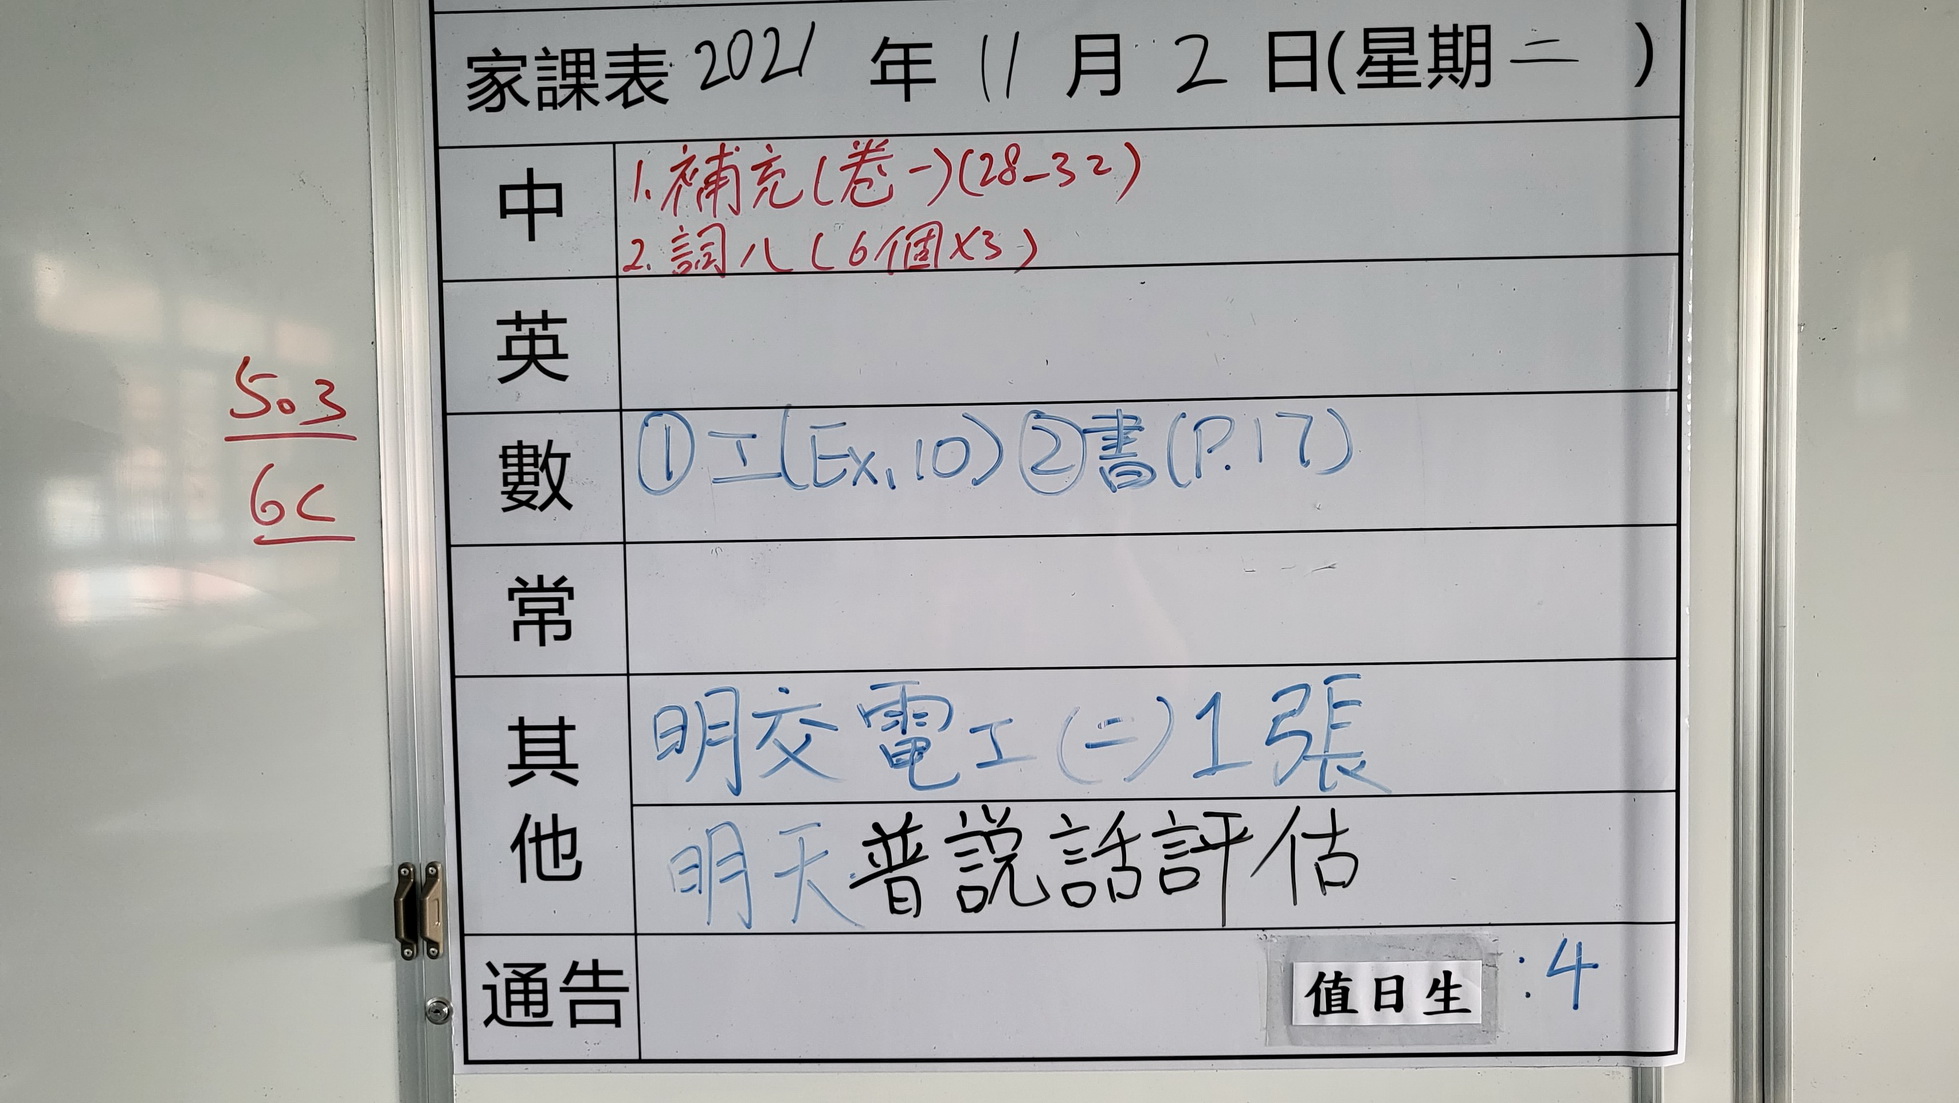 家課表 2021 年 11 月 2 日(星期二)
中
1. 補充(卷一)(28-32)
2. 詞八(6個X3)
英
503
6C
數
①工(Ex.10) ②書(P.17)
常
其他
明交電工(二)1張
明天普説話評估
通告
值日生 : 4